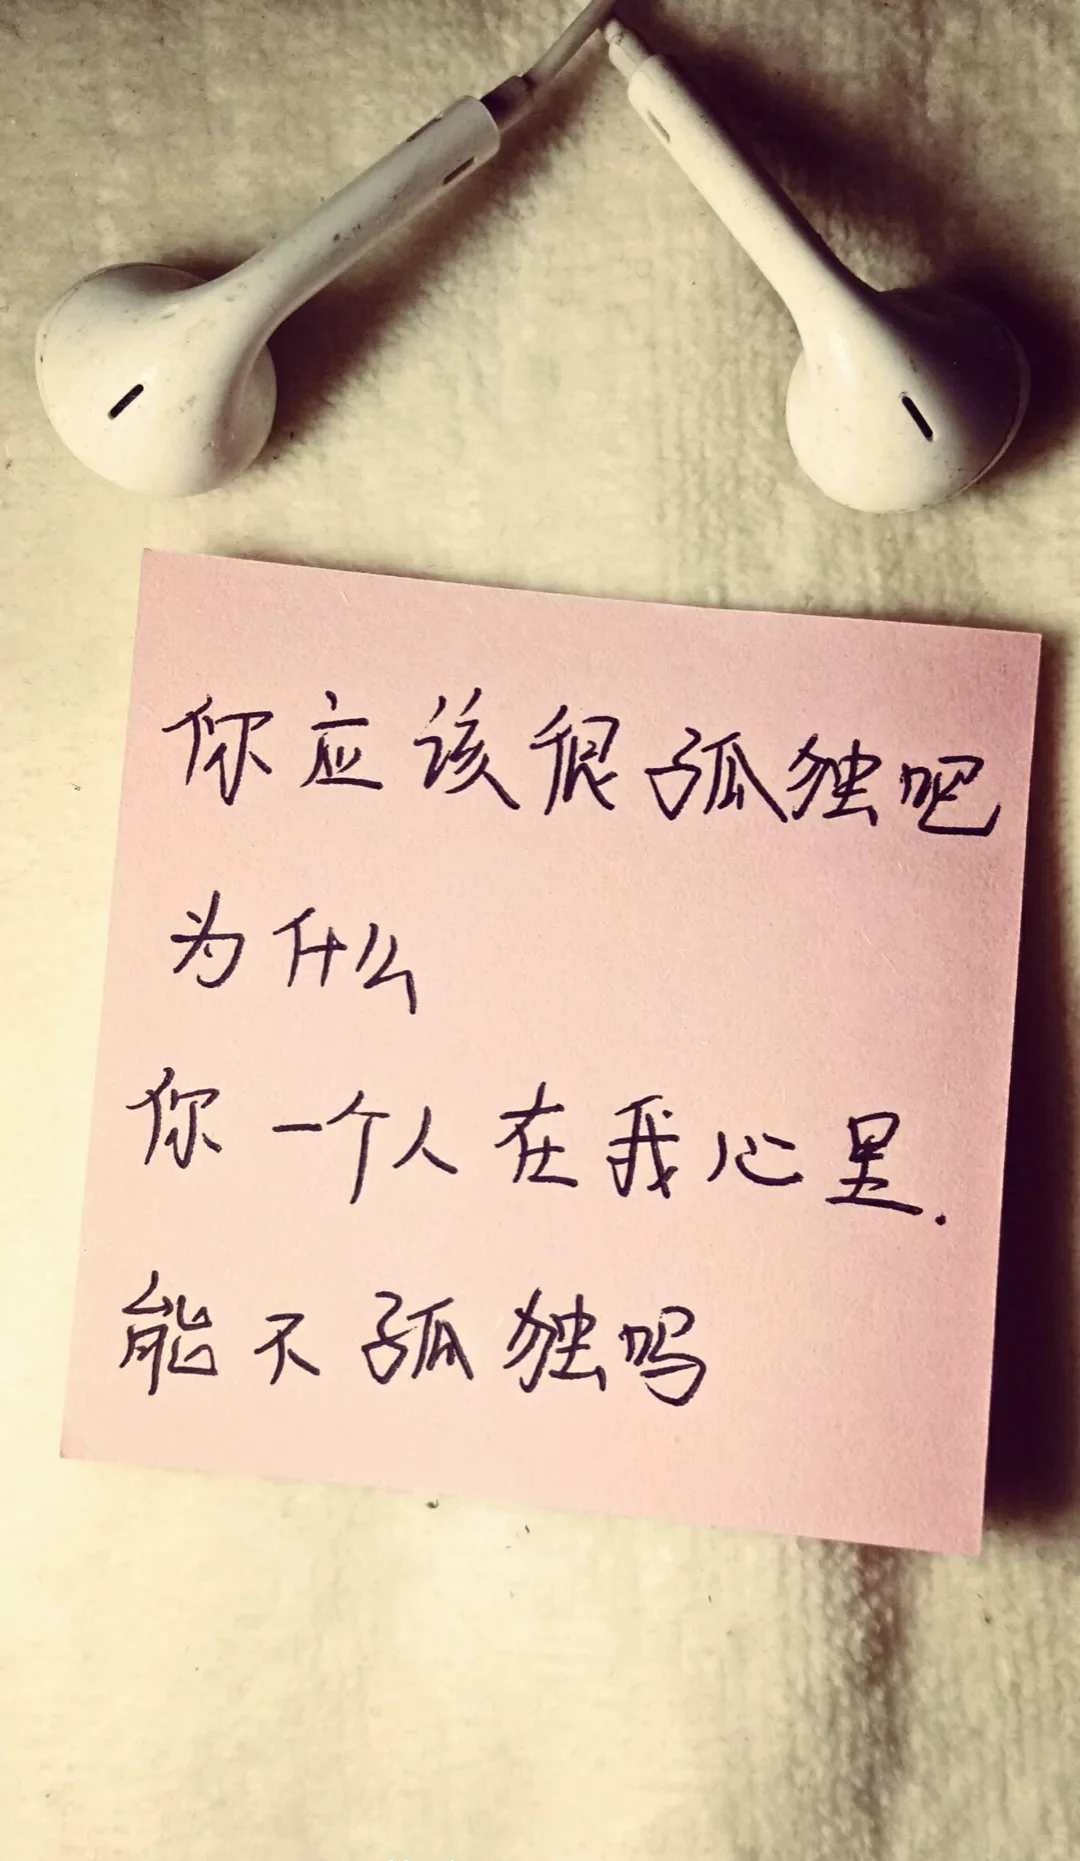 你应该很孤独吧
为什么
你一个人在我心里.
能不孤独吗